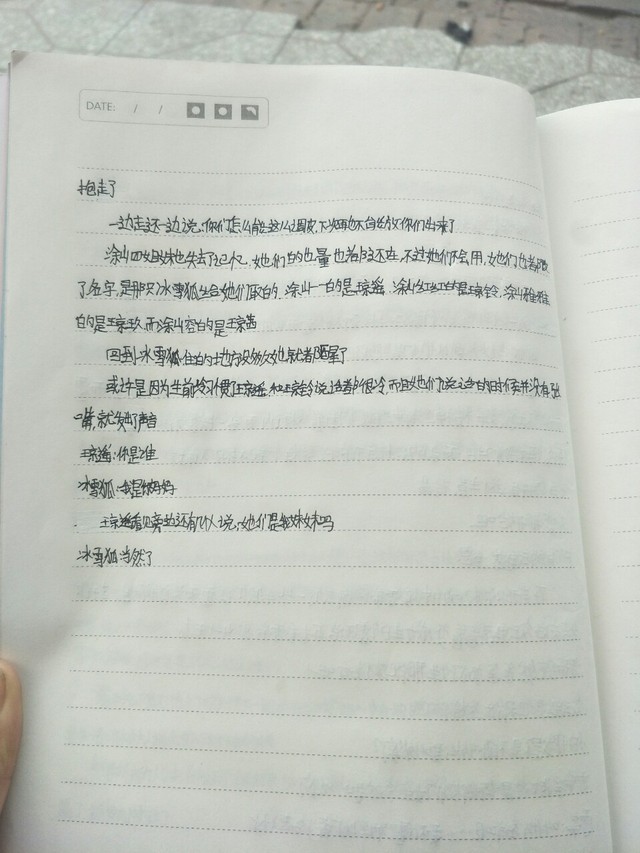 DATE: / /
抱走了
一边走还一边说,你们怎么能这么调皮,下次再也不自己放你们出来了
涂山四姐妹也失去了记忆,她们的力量也都还在,不过她们不会用,她们也都
了名字,是那只冰雪狐给她们取的,涂山一的是琼遥,涂山红红的是琼铃,涂山雅雅
的是琼玖,而涂山容的是琼
回到冰雪狐住的地方没多久她就都醒了
或许是因为生前冷习惯了琼遥和琼铃说话都很冷,而且她们说话的时候并没有张
嘴,就发出了声音
琼遥:你是谁
冰雪狐:我是你妈妈
琼遥看见旁边还有几人说,她们是我妹妹吗
冰雪狐当然了